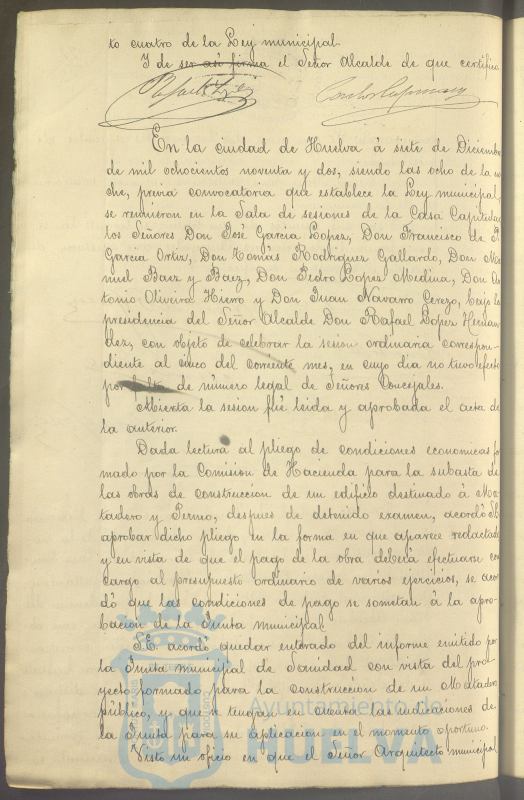 to cuatro de la Ley municipal.
Y de ser asi firma el Señor Alcalde de que certifico
Rafael Lz
En la ciudad de Huelva á siete de Diciembre
de mil ochocientos noventa y dos, siendo las ocho de la no
che, prévia convocatoria que establece la Ley municipal,
se reunieron en la Sala de sesiones de la Casa Capitular
los Señores Don José Garcia Lopez, Don Francisco de P.
Garcia Ortiz, Don Tomás Rodriguez Gallardo, Don Ma
nuel Baez y Baez, Don Pedro Lopez Medina, Don An
tonio Oliveira Hierro y Don Juan Navarro Cerezo, bajo la
presidencia del Señor Alcalde Don Rafael Lopez Hernan
dez, con objeto de celebrar la sesion ordinaria correspon
diente al cinco del corriente mes, en cuyo dia no tuvo efecto
por falta de número legal de Señores Concejales.
Abierta la sesion fué leida y aprobada el acta de
la anterior.
Dada lectura al pliego de condiciones economicas for
mado por la Comision de Hacienda para la subasta de
las obras de construccion de un edificio destinado á Ma
tadero y Perneo, despues de detenido examen, acordó S.E.
aprobar dicho pliego en la forma en que aparece redactado
y en vista de que el pago de la obra deberá efectuarse con
cargo al presupuesto ordinario de varios ejercicios, se acor
dó que las condiciones de pago se sometan á la apro
bacion de la Junta municipal.
S.E. acordó quedar enterado del informe emitido por
la Junta municipal de Sanidad con vista del pro
yecto formado para la construccion de un Matadero
público, y que se tengan en cuenta las indicaciones de
la Junta para su aplicacion en el momento oportuno.
Visto un oficio en que el Señor Arquitecto municipal
Ayuntamiento de
HUELVA